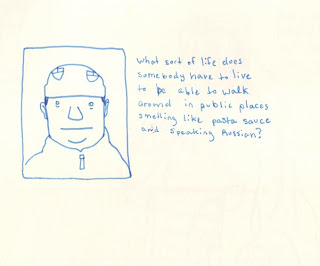 What sort of life does
somebody have to live
to be able to walk
around in public places
smelling like pasta sauce
and speaking Russian?